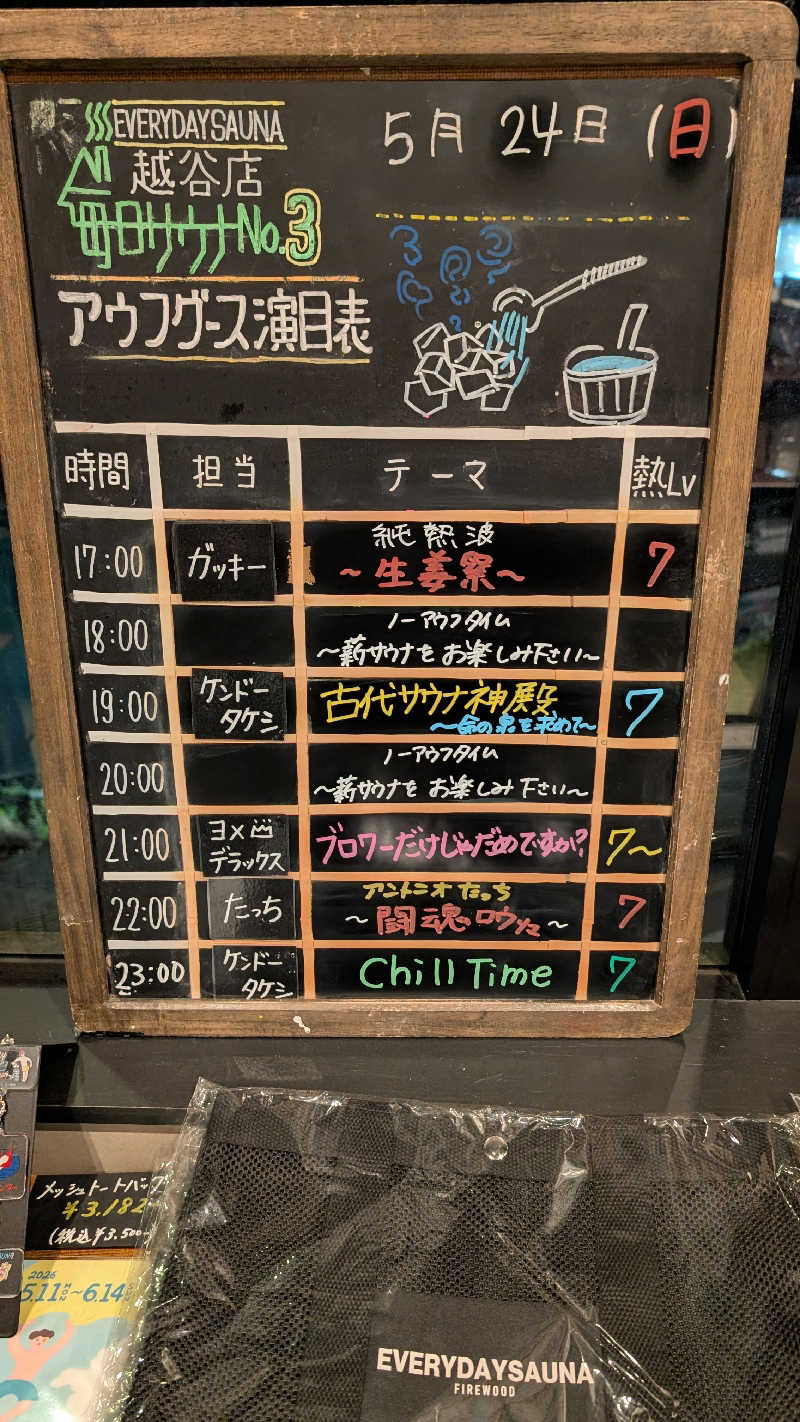 EVERYDAYSAUNA
越谷店
毎日サウナNo.3
5月24日(日)
アウフグース演目表
時間 担当 テーマ 熱Lv
17:00 ガッキー 純熱波 7
～生姜祭～
18:00 ノーアウフタイム
～薪サウナをお楽しみ下さい～
19:00 ケンドータケシ 古代サウナ神殿 7
～命の泉を求めて～
20:00 ノーアウフタイム
～薪サウナをお楽しみ下さい～
21:00 デラックス ブロワーだけじゃだめですか? 7～
22:00 たっち アントニオたっち 7
～闘魂ロウリュ～
23:00 ケンドータケシ Chill Time 7
メッシュトートバッグ
¥3,182
(税込¥3,500
2026
5.11 MON～6.14
EVERYDAYSAUNA
FIREWOOD